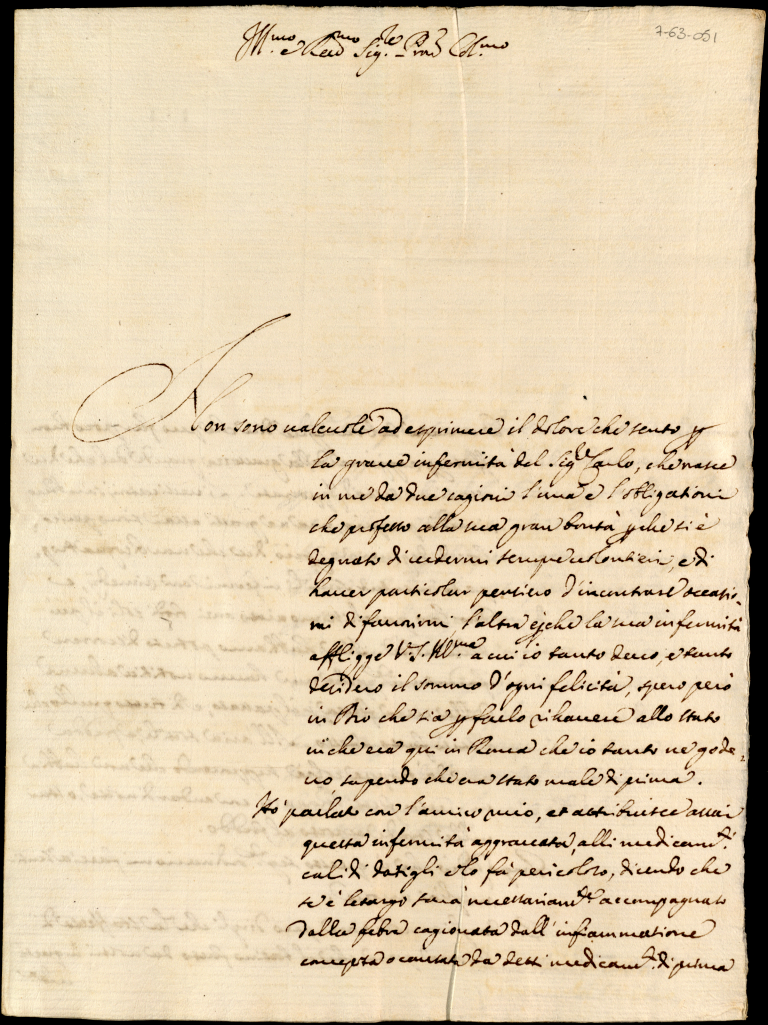 7-63-051
Ill.mo e Reu.mo Sig.re Pron Col.mo
Non sono ualeuole ad esprimere il dolore che sento p
la graue infermità del Sig.r Carlo, che nasce
in me da due cagioni l'una è l'obligationi
che professo alla sua gran bontà p che si è
degnato di uedermi sempre uolontieri, e di
hauer particolar pensiero d'incontrare occasio-
ni di fauorirmi l'altra è p che la sua infermità
affligge V.S. Ill.ma a cui io tanto deuo, e tanto
desidero il sommo d'ogni felicità, spero però
in Dio che sia p farlo rihauere allo stato
in che era qui in Roma che io tanto ne gode-
uo sapendo che era stato male di prima.
Hò parlato con l'amico mio, et attribuisce assai
questa infermità aggrauata, alli medicam.ti
calidi datigli e lo fà pericoloso, dicendo che
se è letargo sarà necessariam.te accompagnato
dalla febre cagionata dall'infiammatione
concepta o causata da detti medicam.ti di prima